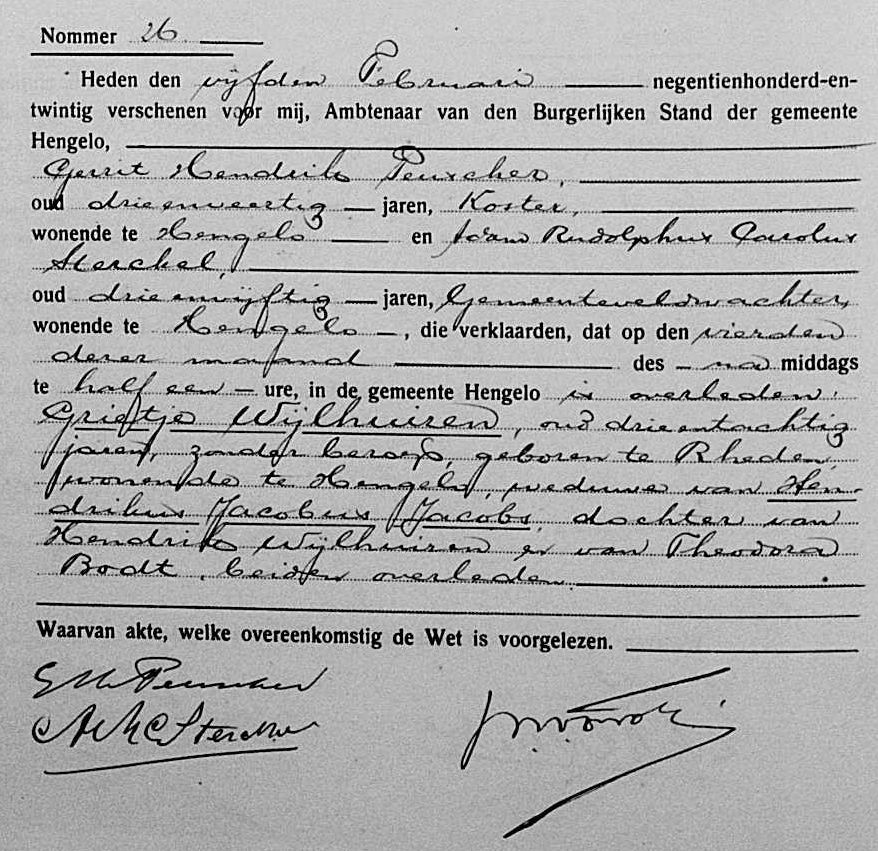 Nommer 26
Heden den vijfden Februari negentienhonderd-en-
twintig verschenen voor mij, Ambtenaar van den Burgerlijken Stand der gemeente
Hengelo,
Gerrit Hendrik Peuscher,
oud drieenveertig jaren, Koster,
wonende te Hengelo en Adam Rudolphus Carolus
Sterckel,
oud drieenvijftig jaren, Gemeenteveldwachter,
wonende te Hengelo, die verklaarden, dat op den vierden
dezer maand des na middags
te half een ure, in de gemeente Hengelo is overleden:
Grietje Wijlhuizen, oud drieentachtig
jaren, zonder beroep, geboren te Rheden,
wonende te Hengelo, weduwe van Hen-
drikus Jacobus Jacobs, dochter van
Hendrik Wijlhuizen en van Theodora
Bodt, beiden overleden.
Waarvan akte, welke overeenkomstig de Wet is voorgelezen.